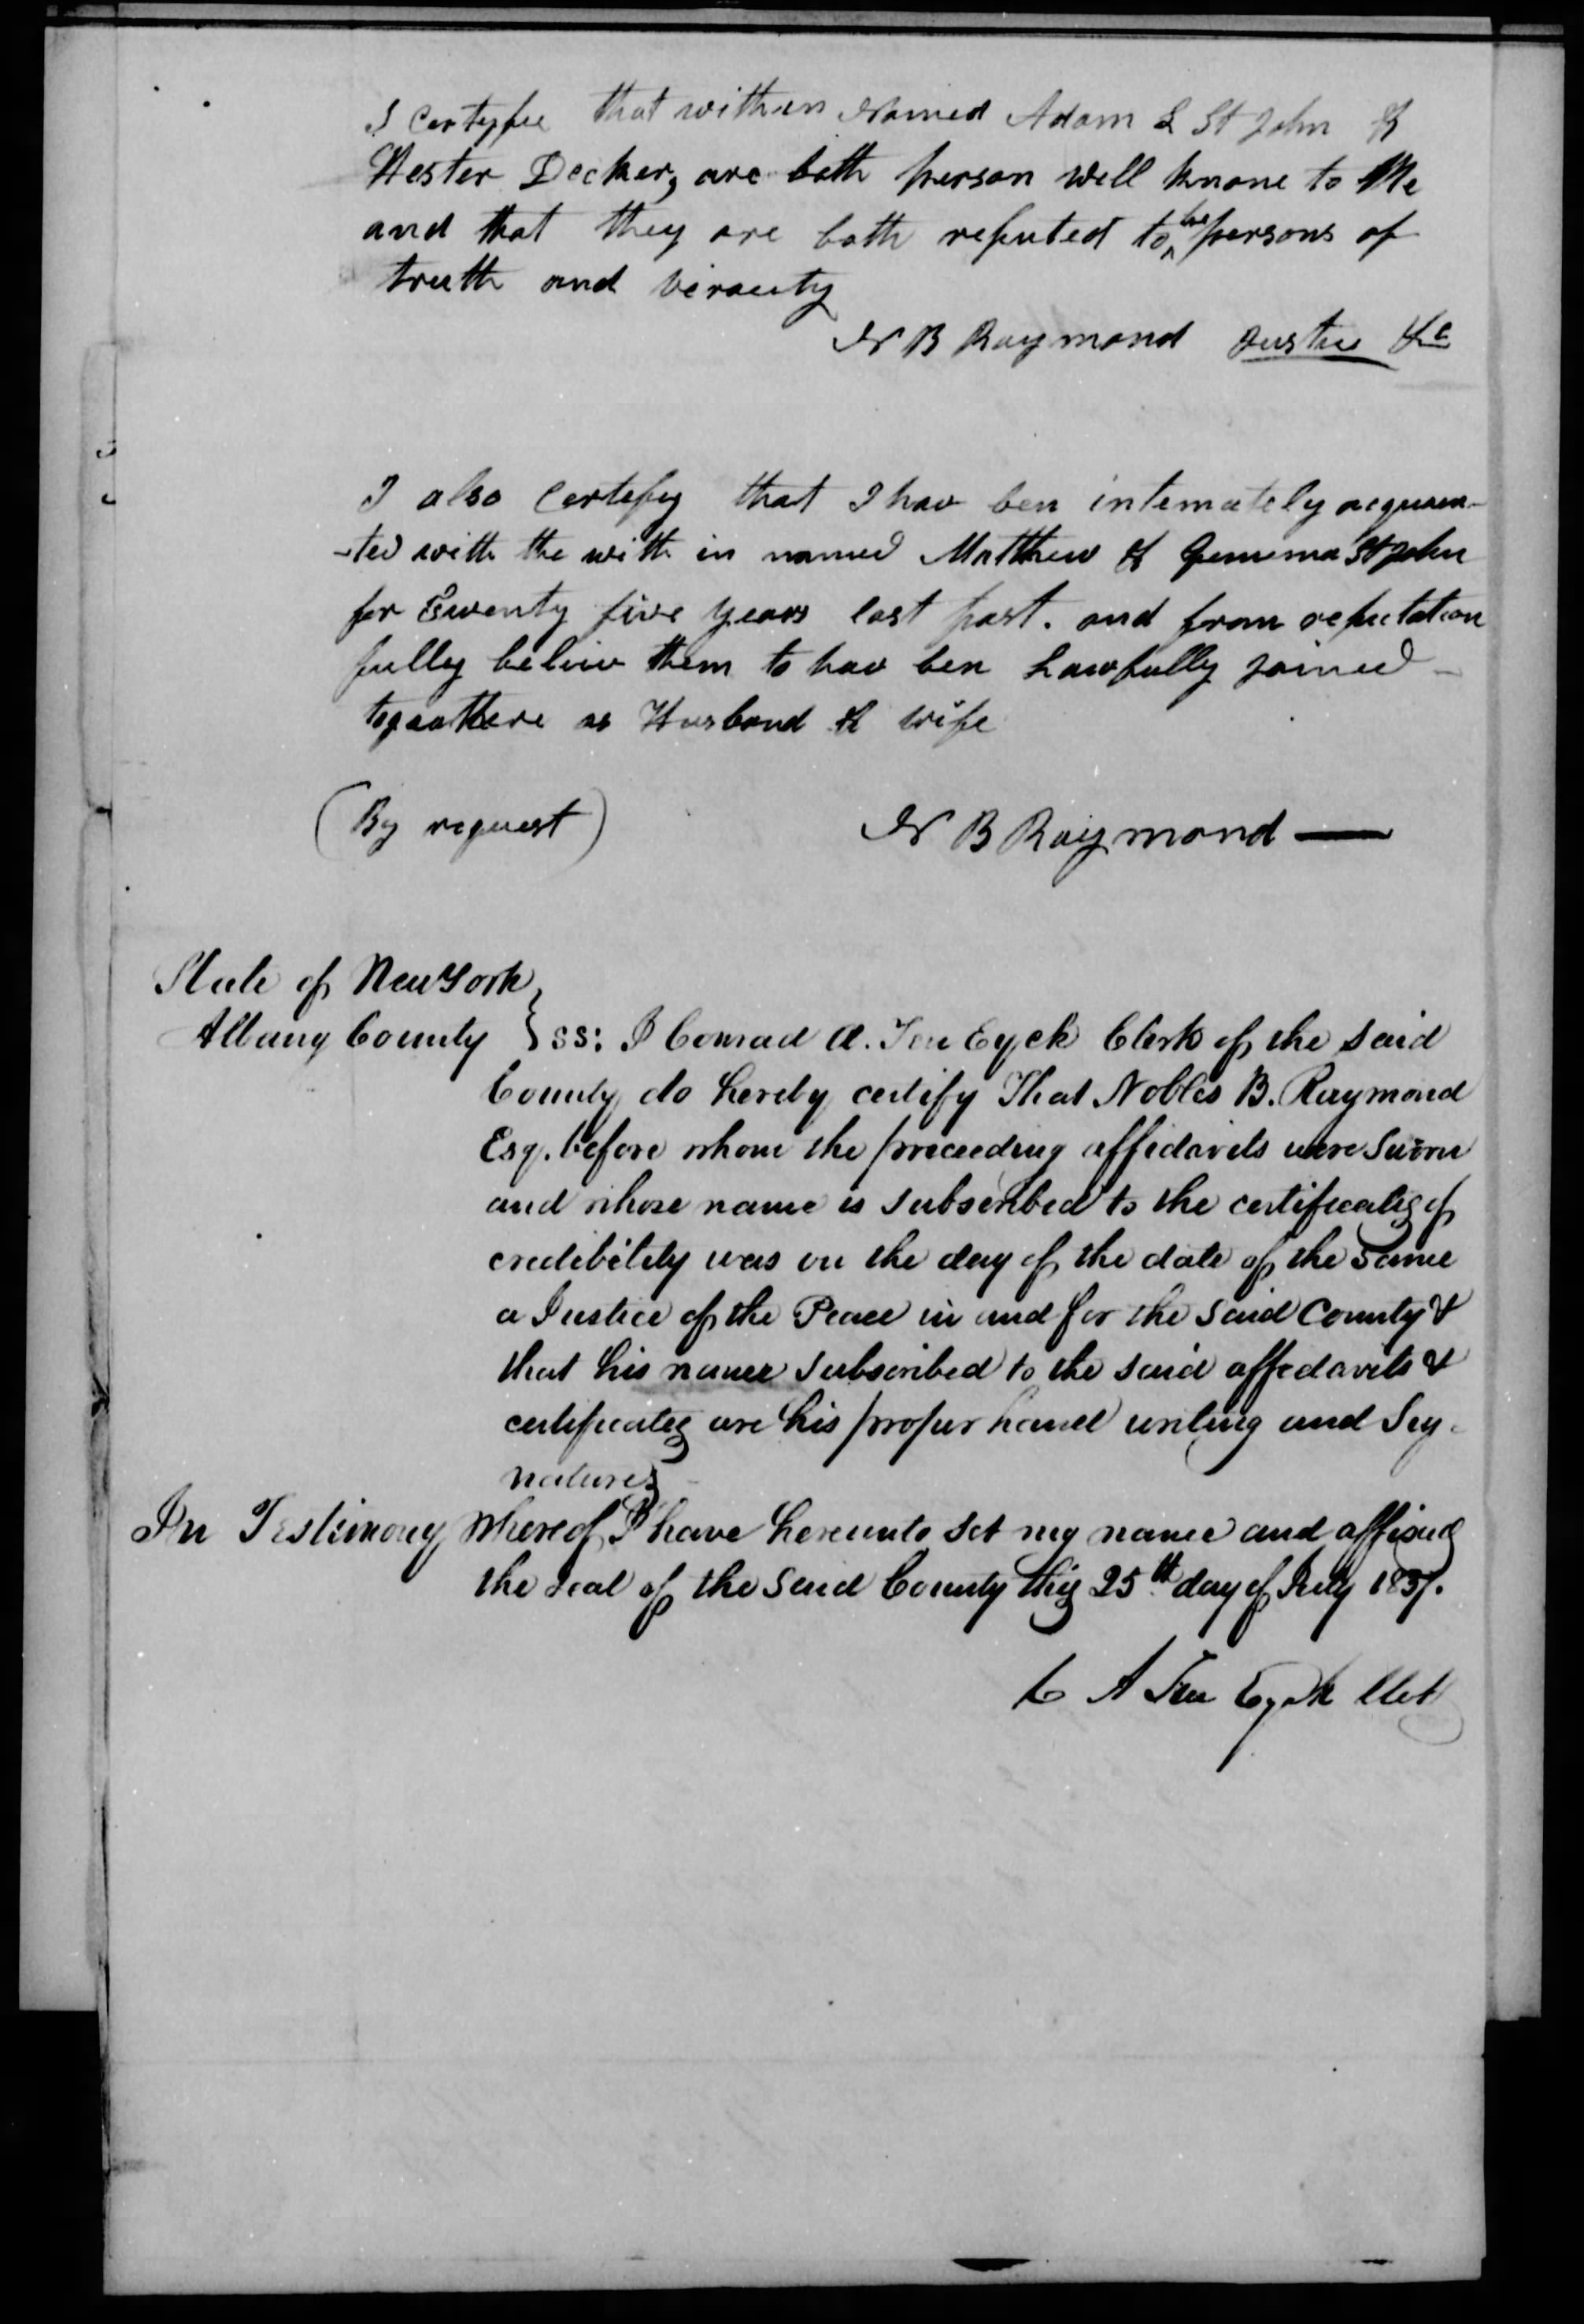 I Certyfie that within Named Adam L St John &
Hester Decker, are both person well knone to Me
and that they are both reputed to be persons of
truth and viracity
N B Raymond Justice &c
I also Certefy that I hav ben intemately acquain-
-ted with the with in named Matthew & Jemima St John
for Twenty five years last past. and from reputation
fully beliu them to hav ben Lawfully joined -
togeathere as Husband & wife
(By request) N B Raymond —
State of New York
Albany County } ss: I Conrad A. Ten Eyck Clerk of the said
County do hereby certify That Nobles B. Raymond
Esq. before whom the preceeding affidavits were Sworn
and whose name is subscribed to the certificates of
credibility was on the day of the date of the same
a Justice of the Peace in and for the said County &
that his names subscribed to the said affidavits &
certificates are his proper hand writing and Sig-
natures
In Testimony Whereof I have hereunto set my name and affixed
the seal of the said County this 25th day of July 1837.
C A Ten Eyck Clerk